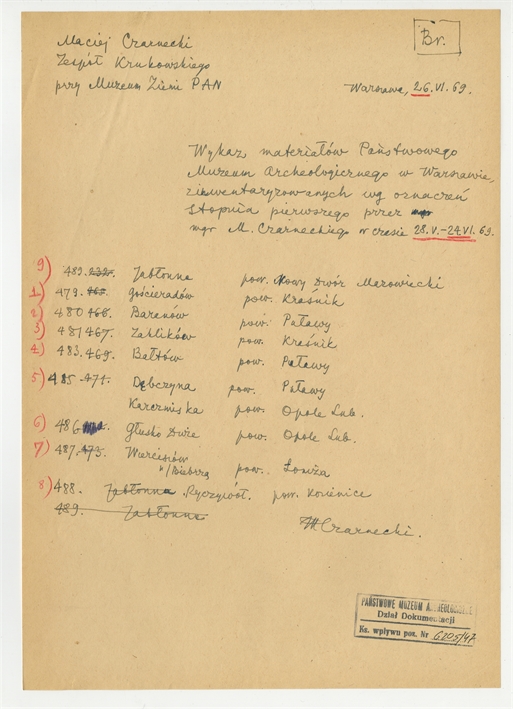 Maciej Czarnecki
Br.
Zespół Krukowskiego
przy Muzeum Ziemi PAN
Warszawa, 26.VI.69.
Wykaz materiałów Państwowego
Muzeum Archeologicznego w Warszawie,
zinwentaryzowanych wg oznaczeń
stopnia pierwszego przez mgr
mgr M. Czarneckiego w czasie 28.V.-24.VI.69.
9) 489. Jabłonna pow. Nowy Dwór Mazowiecki
1) 479. 465. Gościeradów pow. Kraśnik
2) 480 466. Baranów pow. Puławy
3) 481 467. Zaklików pow. Kraśnik
4) 483. 469. Bałtów pow. Puławy
5) 485 471. Dąbczyna pow. Puławy
Karczmiska pow. Opole Lub.
6) 486 Głusko Duże pow. Opole Lub.
7) 487. 473. Wierciszów
n/Biebrzą pow. Łomża
8) 488. Jabłonna Ryczywół. pow. Kozienice
489. Jabłonna
MCzarnecki.
PAŃSTWOWE MUZEUM ARCHEOLOGICZNE
Dział Dokumentacji
Ks. wpływu poz. Nr 6205/47